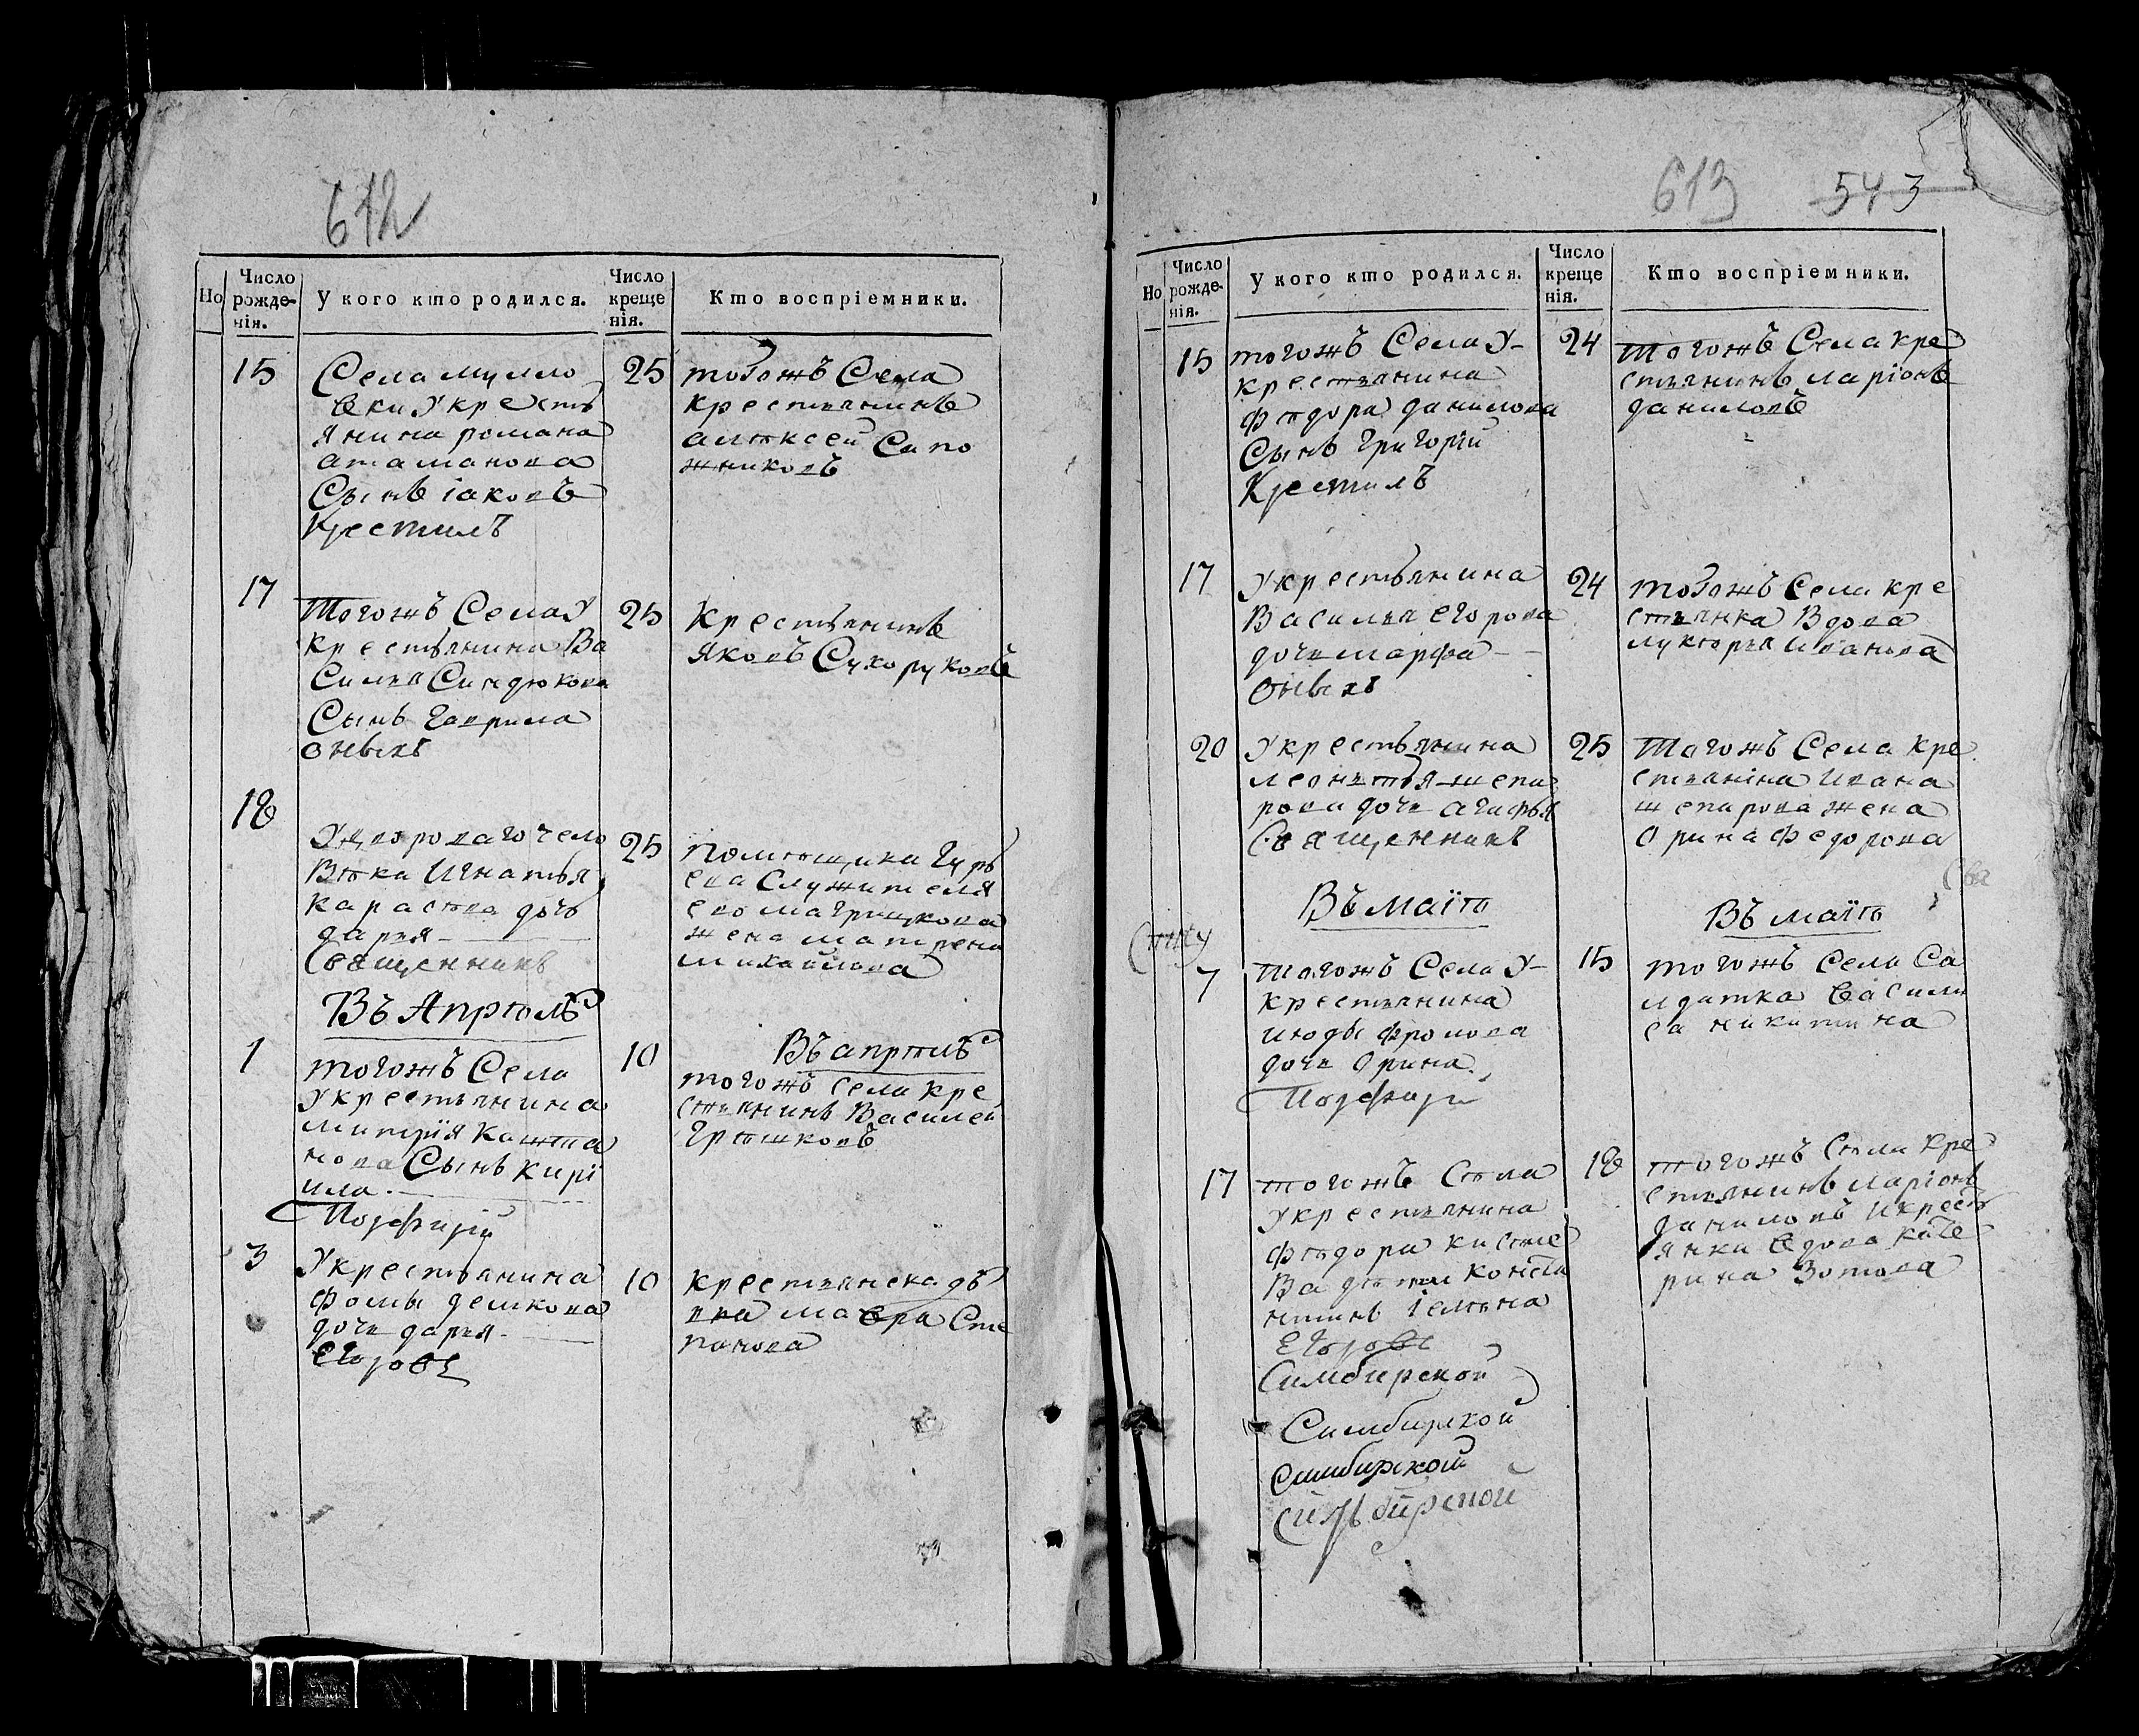 612
Но
Число рожде-нія.
У кого кто родился.
Число креще нія.
Кто воспріемники.
15
Села мулло
вки у крестъ
янина романа
атаманова
Сынъ іаковъ
Крестилъ
25
тогожъ Села
крестьянинъ
алѣксей Сапо
жниковъ
17
Тогожъ Села у
крестьянина Ва
Силья Синдюкова
Сынъ гаврила
оныхъ
25
Крестьянинъ
яковъ Сухоруковъ
18
У дворового чело
Вѣка Игнатья
карасѣва дочь
дарья
Священникъ
25
Помѣщика гурь
ева Служителя
жена матрена
михайлова
Въ Апрѣлѣ
Въ апрѣлѣ
1
тогожъ Села
у крестьянина
митрія кашта
нова Сынъ кирі
ила
Порфирій
10
тогожъ села кре
стьянинъ Василей
грѣшковъ
3
У крестьянина
фомы демкова
дочь дарья
Егоровъ
10
крестьянска дѣ
вка мавра Сте
панова
613 543
Но
Число рожде-нія.
У кого кто родился.
Число креще нія.
Кто воспріемники.
15
тогожъ Села У-
крестьянина
фѣдора данилова
Сынъ григорій
Крестилъ
24
Тогожъ Села кре
стьянинъ ларіонъ
даниловъ
17
У крестьянина
Василья егорова
дочь марфа
оныхъ
24
тогожъ Села кре
стьянка Вдова
лукѣрья иванова
20
У крестьянина
леонтья шепа
рова дочь агафья
Священникъ
25
Тогожъ Села кре
стьяніна ивана
шепарова жена
орина федорова
Въ маіѣ
Въ маіѣ
7
Тогожъ Села У-
крестьянина
июды фролова
дочь орина
Порфирій
15
тогожъ села Са
лдатка васили
са никитина
17
тогожъ Сѣла
у крестьянина
фѣдора кисѣле
ва дѣти конста
нтинъ іелѣна
Егоровъ
18
тогожъ Сѣла кре
стьянинъ ларіонъ
даниловъ и крестъ
янки вдова кате
рина Зотова
Симбирской
Симбирской
Симбирской
Симбирской